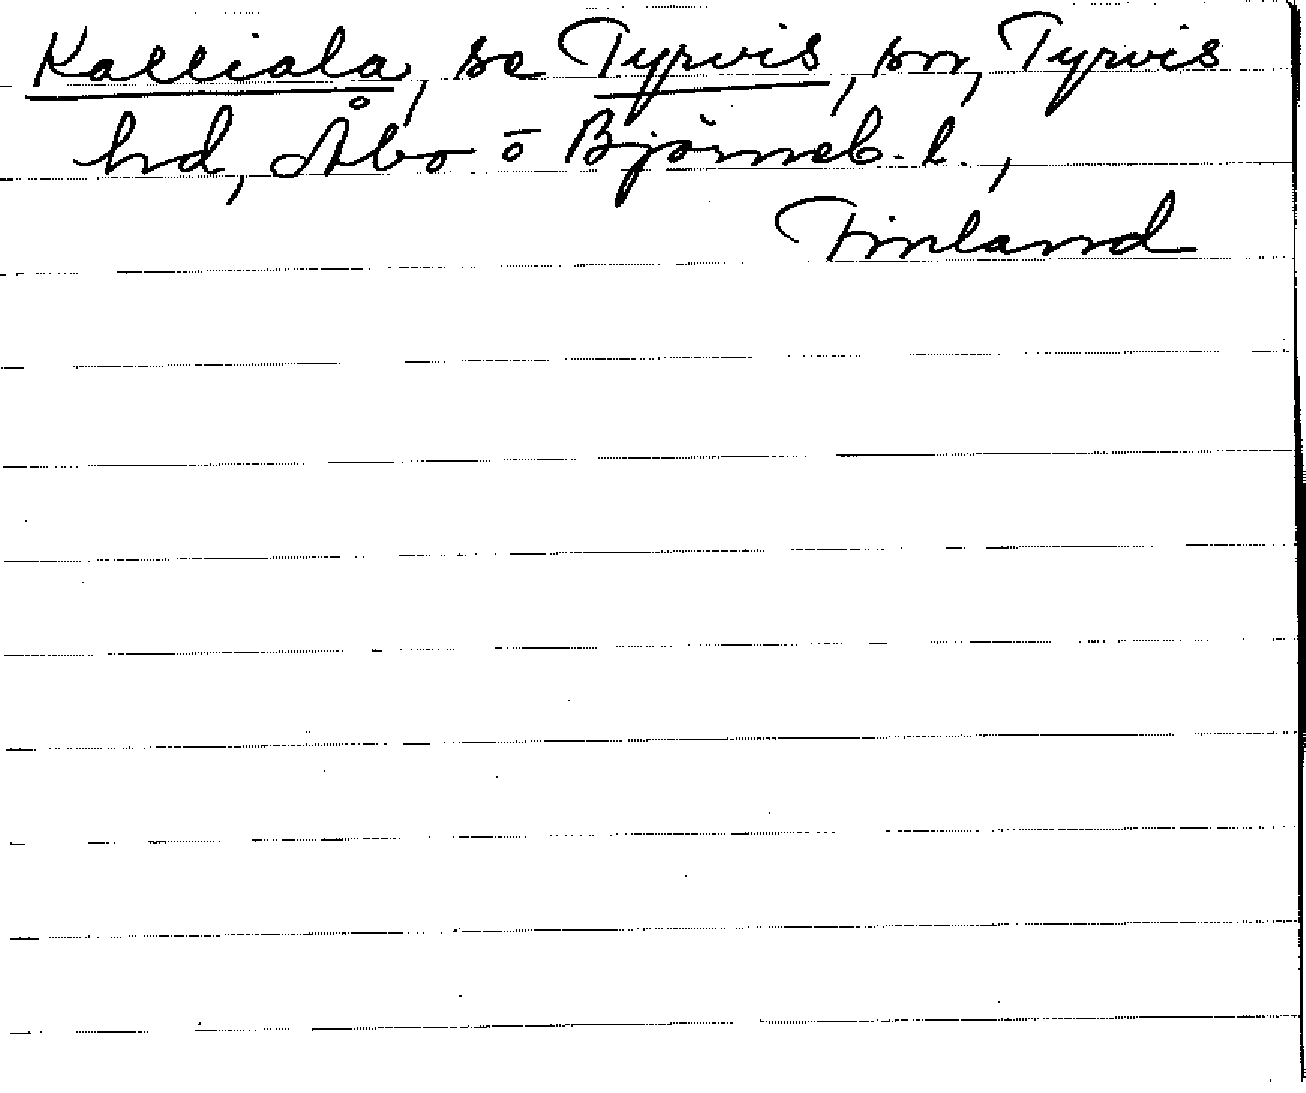 Kalliala, se Tyrvis, sn, Tyrvis
hd, Åbo o Björneb. l.,
Finland